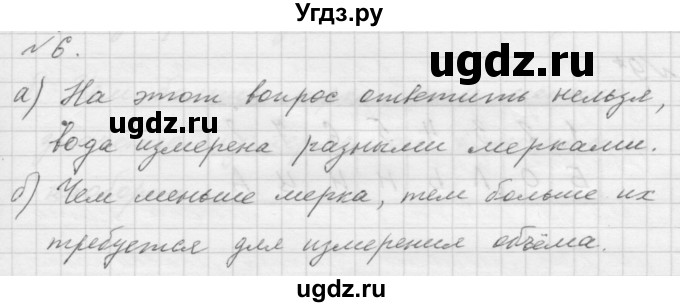 Угдз.ру
№6.
ugdz.ru
а) На этот вопрос ответить нельзя,
ugdz.ru
вода измерена разными мерками.
б) Чем меньше мерка, тем больше их
ugdz.ru
требуется для измерения объёма.
ugdz.ru
ugdz.ru